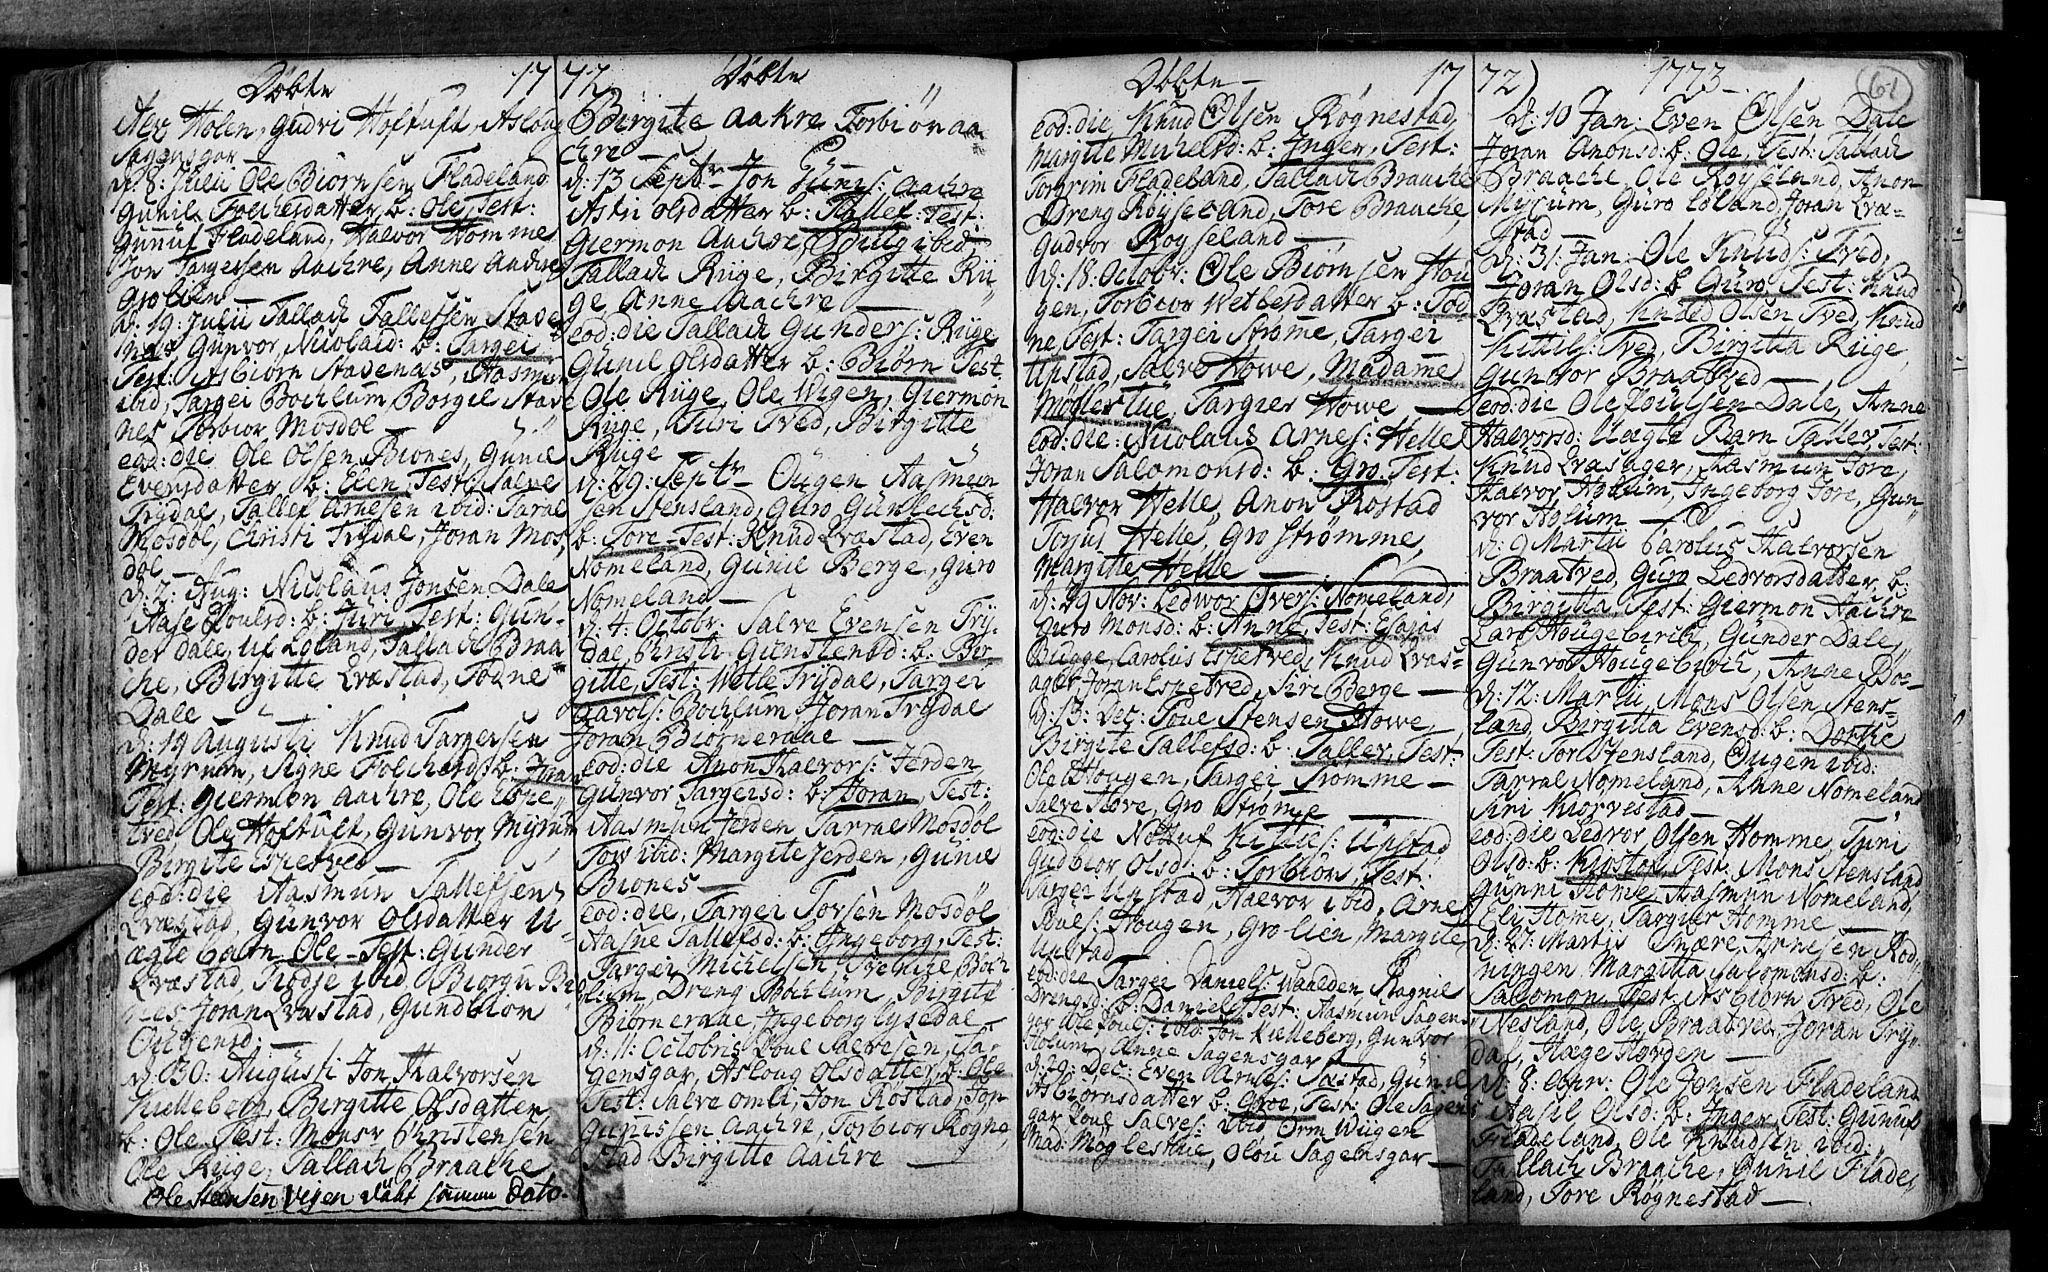 Döbte 17
Aev Holen, Gudri Hoftuft, Asloug
Sagensgar —
d. 8: Julii Ole Biörnsen Fladeland
Gunil Folchesdatter, b: Ole, Test:
Gunuf Fladeland, Halvor Homme
Jon Targersen Aachre, Anne Aachre
Gro
d. 19: Julii Tallach Tallefsen Stase
nes Gunvor Nicolaid: b: Targei
Test: Asbiörn Stasenes, Aasmun
ibid, Targei Bochlum, Borgil Stase
nes Torbior Mosdöl —
eod: die Ole Olsen Biones, Gunil
Evensdatter b: Even, Test: Salve
Trydal, Tallef Arnesen ibid: Taral
Mosdöl, Christi Trydal, Joran Mos,
döl —
d. 2: Aug: Nicolaus Jonsen Dale
Aase Poulsd: b: Juri, Test: Gun-
der Dale, Ulf Loland, Tallach Braa
che, Birgitte Qvæstad, Todne
Dale —
d: 19 Augusti Knud Targersen
Myrum, Signe Folchardsd: b: Joran
Test: Giermon Aachre, Ole Espe-
tved Ole Hoftuft, Gunvor Myrum
Birgite Espetved —
eod: die Aasmun Tallefsen
Qvæstad, Gunvor Olsdatter U-
ægte barn Ole — Test: Gunder
Qvæstad, Todje ibid, Biorgu Bio
nes Joran Qvæstad, Gundbior
Ouvensd: —
d. 30: Augusti Jon Halvorsen
Kielleberg, Birgitte Olsdatter
b: Ole Test: Monsr Christensen
Ole Rüge, Tallach Braache
Ole Steensen Vejen samme Dato.
72 Döbte
Birgite Aakre Torbiör Aa
chre —
d. 13 Septr Jon Gunis: Aachre
Astri Olsdatter b: Tallef: Test:
Giermon Aachre, ibid
Tallach Rüge, Birgitte Rü
ge Anne Aachre —
eod: die Tallach Gunders: Rüge
Gunil Olsdatter b: Biörn Test.
Ole Rüge, Ole Wigen, Giermon
Rüge, Turi Tved, Birgitte
Rüge
d. 29: Septr Ougen Aasmun
sen Stensland, Guro Gunlechsd:
b: Tore — Test: Knud Qvæstad, Even
Nomeland, Gunil Berge, Guro
Nomeland —
d: 4: Octobr: Salve Evensen Try,
dal Christi Gunstensd: b: Ber
gitte, Test: Wetle Trydal, Targei
Carols: Bochlum Joran Trydal
Joran Biorneraae —
eod: die Anon Halvors: Jerden
Gunvor Targersd: b: Joran, Test:
Aasmun Jerden Tarral Mosdöl
Tov ibid: Margite Jerden, Gunil
Biones —
eod: die, Targei Torsen Mosdöl
Aasne Tallefsd: b: Ingeborg, Test:
Targei Michelsen, Svenke Boch
lum, Dreng Bochlum, Birgite
Biorneraae, Ingeborg Lysedal
d. 11: Octobris Poul Salvesen, Sa-
gensgar, Asloug Olsdatter, b: Ole
Test: Salve Omli, Jon Röstad, Jon
Gunissen Aachre, Torbior Rögne,
stad Birgitte Aachre —
Döbte — 17
eod: die Knud Olsen Rögnestad
Margite Michelsd: b: Inger, Test:
Torgrim Fladeland, Tallach Braache
Dreng Röyseland, Tore Braache,
Gudvor Royseland —
d. 18: Octobr: Ole Biörnsen Hou
gen, Torbior Wetlesdatter b: Tod
ne, Test: Targei Strøme, Targei
Upstad, Salve Howe, Madame
Möglestüe, Targier Howe —
eod: die: Nicolaus Arnes: Helle
Joran Salomonsd: b: Gro, Test:
Halvor Helle, Anon Röstad
Torjus Helle, Gro Strømme,
Margitte Helle —
d. 29 Nov: Ledwor Overs: Nomeland,
Guro Monsd: b: Anne Test: Esajas
Bugge, Carolus Espetved, Knud Qvas-
ager Joran Espetved, Siri Berge —
d. 13: Dec: Poue Stensen Howe
Birgite Tallefsd: b: Tallef, Test:
Ole Hougen, Targei Strømme —
Salve Howe, Gro Strømme —
eod: die Nottuf Kittils: Upstad
Gudbior Olsd: b: Torbiör, Test:
Targei Upstad, Halvor ibid, Arne
Poues: Hougen, Gro Lien, Margite
Upstad —
eod: die Targei Daniels: Waalden Ragnil
Drengsd: b: Daniel, Test: Aasmun Sagens
gar Ole Pouls: ibid Jon Kielleberg, Gunvor
Holum Anne Sagensgar —
d. 29: Dec: Even Arnes: Sæstad, Gunil
Asbiornsdatter b: Groe, Test: Ole Sagens
gar Poul Salves: ibid Orm Wigen
Mad: Moglestüe, Olou Sagensgar —
72) 1773 — 61
d: 10 Jan: Even Olsen Dale
Joran Anonsd: b: Ole, Test: Tallach
Braache, Ole Royseland, Anon
Myrum, Guro Loland, Joran Qvæ-
stad —
d. 31: Jan: Ole Knuds: Tved,
Joran Olsd: b Guro, Test: Knud
Qvæstad, Knud Olsen Tved, Knud
Kittils: Tved, Birgitta Rüge,
Gunvor Braatved —
eod: die Ole Poulsen Dale, Anne
Halvorsd: Uægte Barn Tallef, Test:
Knud Qvasager, Aasmun Jore,
Halvor Holum, Ingeborg Jore, Gun-
vor Holum —
d. 9 Martii Carolus Halvorsen
Braatved, Guro Ledvorsdatter b:
Birgitta Test: Giermon Aachre
Lars Hougebirch, Gunder Dale,
Gunvor Hougebirch, Anne
d: 12: Martii Mons Olsen Stens-
land, Birgitta Evensd: b: Dorthe
Test: Tor Stensland, Ougen ibid:
Tarral Nomeland, Anne Nomeland
Siri Qvævestad —
eod: die Ledvor Olsen Homme, Turi
Olsd: b: , Test: Mons Stensland
Gunni Home, Aasmun Nomeland,
Eli Home, Targier Homme —
d: 27: Martis Snære Arnesen Rod-
ningen Margitta Salomonsd: b:
Salomon Test: Asbiörn Tved, Ole
Nesland, Ole Braatved, Joran Try-
dal, Hæge Horden —
d. 8: Apr: Ole Jonsen Fladeland
Aasil Olsd: b: Inger Test: Gunuf
Fladeland, Ole Knudsen ibid:
Tallach Braache, Gunil Flade-
land, Tore Rögnestad —